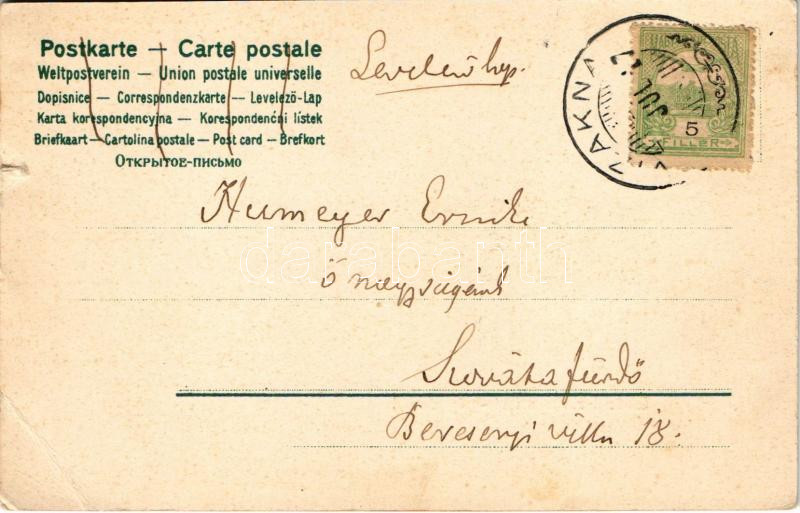 Postkarte — Carte postale
Weltpostverein — Union postale universelle
Dopisnice — Correspondenzkarte — Levelező-Lap
Karta korespondencyjna — Korespondenční lístek
Briefkaart — Cartolina postale — Post card — Brefkort
Открытое-письмо
Levelező lap.
ZAKNA
JUL
5
FILLER
Humeyer Ernike
ő nagyságának
Szováta fürdő
Bercsenyi villa 18.
darabanth